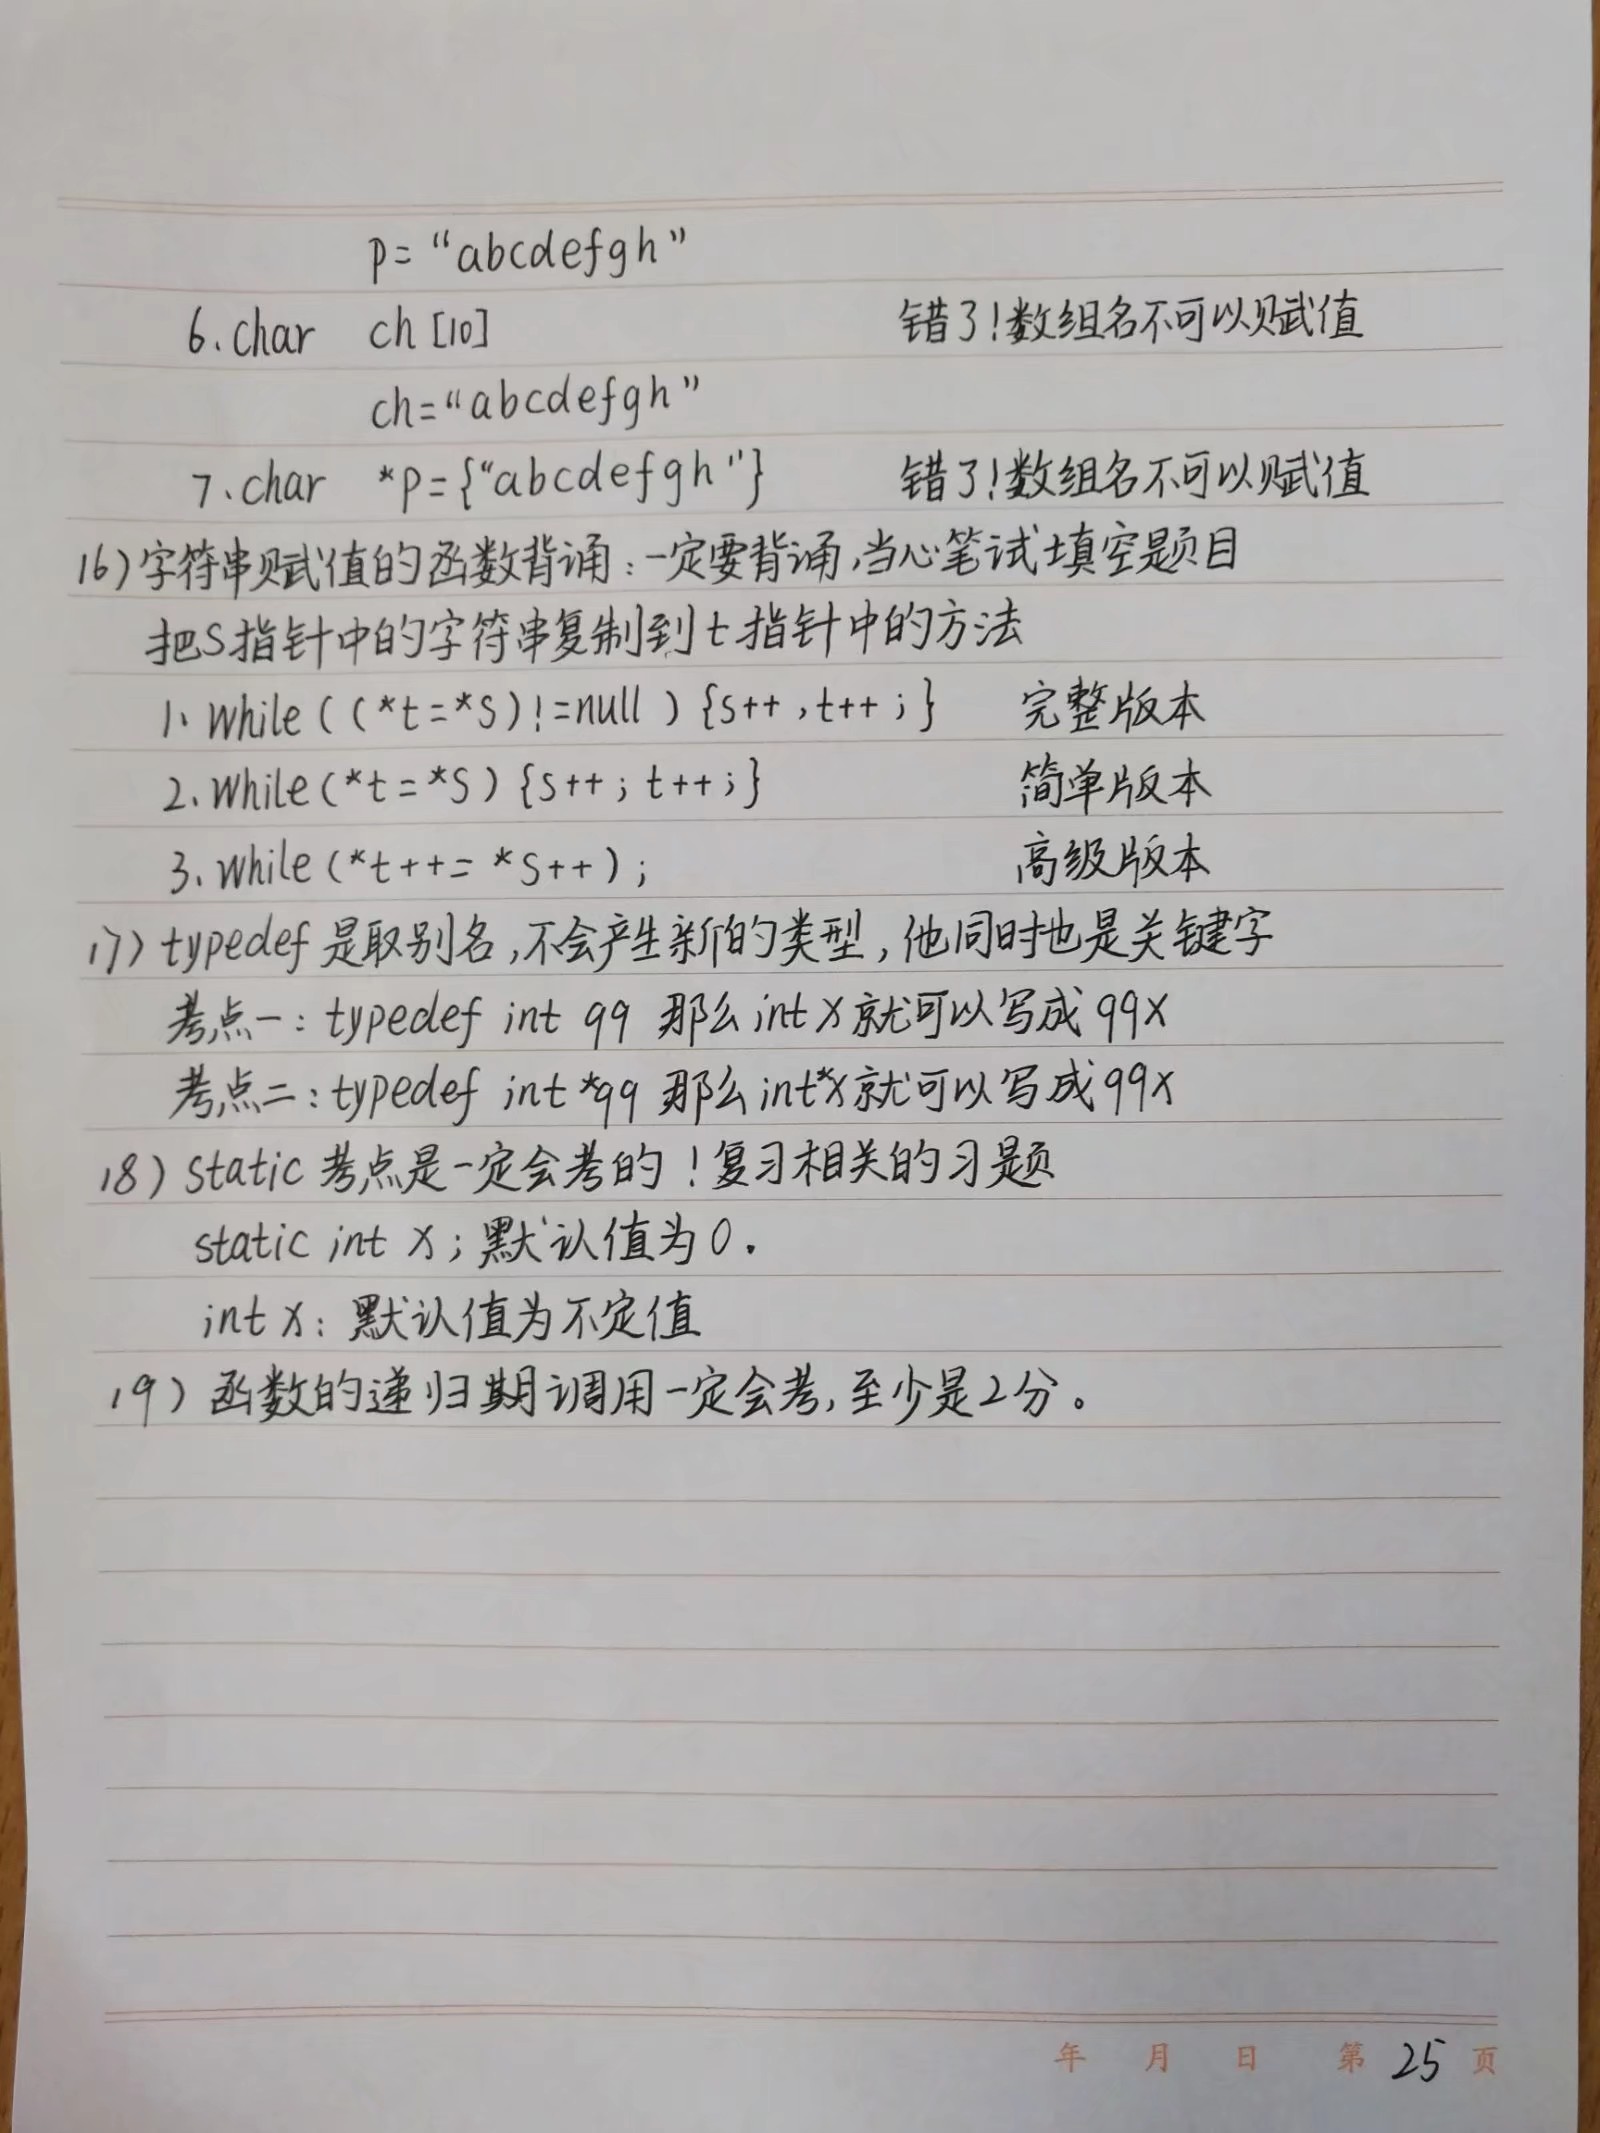 p= “abcdefgh”
6、char ch [10] 错了!数组名不可以赋值
ch=“abcdefgh”
7、char *p={“abcdefgh"} 错了!数组名不可以赋值
16)字符串赋值的函数背诵:一定要背诵,当心笔试填空题目
把S指针中的字符串复制到t指针中的方法
1、While((*t=*S)!=null){s++,t++;} 完整版本
2、While(*t=*S){s++;t++;} 简单版本
3、While(*t++=*S++); 高级版本
17)typedef 是取别名,不会产生新的类型,他同时也是关键字
考点一:typedef int qq 那么 int x 就可以写成 qqx
考点二:typedef int *qq 那么 int*x就可以写成 qqx
18)Static 考点是一定会考的!复习相关的习题
static int x;默认值为0.
int x:默认值为不定值
19)函数的递归期调用一定会考,至少是2分。
年 月 日 第 25 页